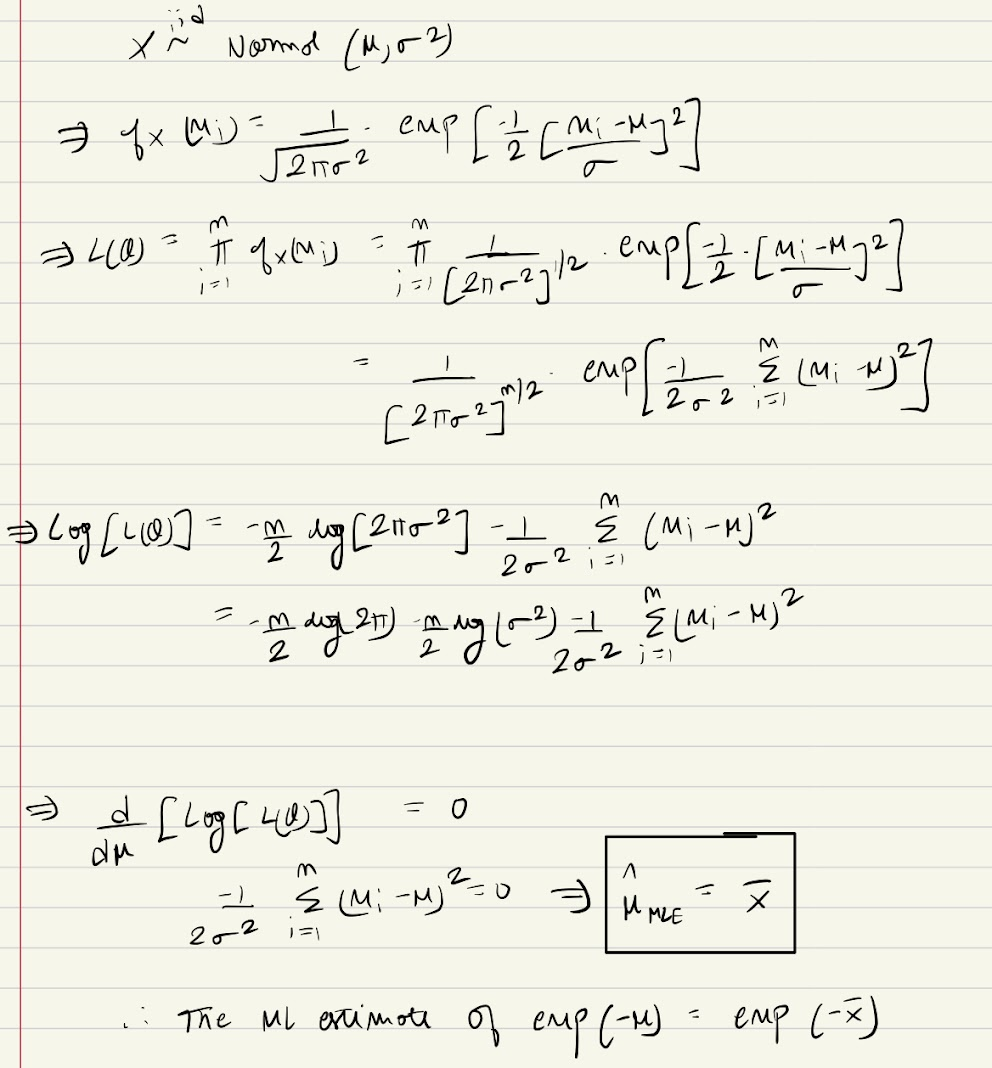 X ~iid Normal (μ, σ²)
⇒ fx (xi) = 1/√(2πσ²) · exp [-1/2 [(xi - μ)/σ]²]
⇒ L(θ) = ∏_{i=1}^{n} fx(xi) = ∏_{i=1}^{n} 1/[2πσ²]^{1/2} · exp[-1/2 · [(xi - μ)/σ]²]
= 1/[2πσ²]^{n/2} · exp[-1/(2σ²) Σ_{i=1}^{n} (xi - μ)²]
⇒ Log [L(θ)] = -n/2 log [2πσ²] - 1/(2σ²) Σ_{i=1}^{n} (xi - μ)²
= -n/2 log(2π) - n/2 log(σ²) - 1/(2σ²) Σ_{i=1}^{n} (xi - μ)²
⇒ d/dμ [Log [L(θ)]] = 0
-1/(2σ²) Σ_{i=1}^{n} (xi - μ)² = 0 ⇒ μ̂_MLE = x̄
∴ The ML estimate of exp (-μ) = exp (-x̄)